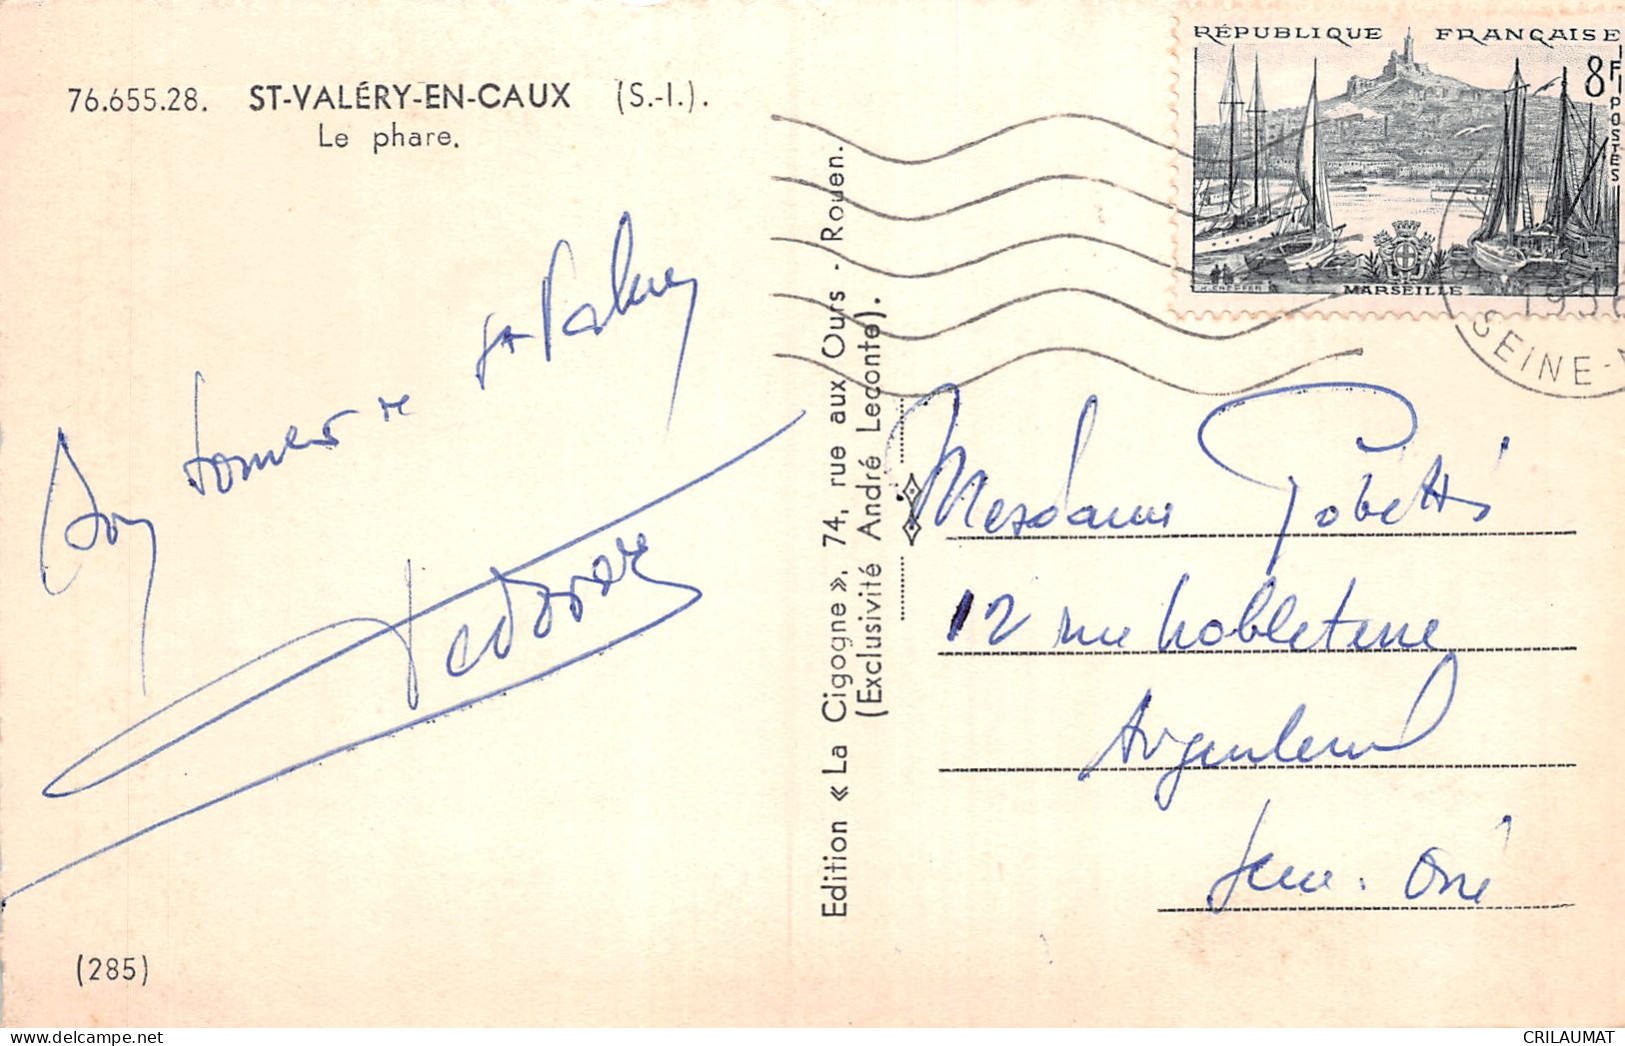 76.655.28. ST-VALÉRY-EN-CAUX (S.-I.).
Le phare.
RÉPUBLIQUE FRANÇAISE
8F
POSTES
MARSEILLE
1956
SEINE-
Bon souvenir de St Valery
Edition « La Cigogne », 74, rue aux Ours - Rouen.
(Exclusivité André Leconte).
Mesdames Gobetti
12 rue
Argenteuil
Seine. Oise
(285)
CRILAUMAT